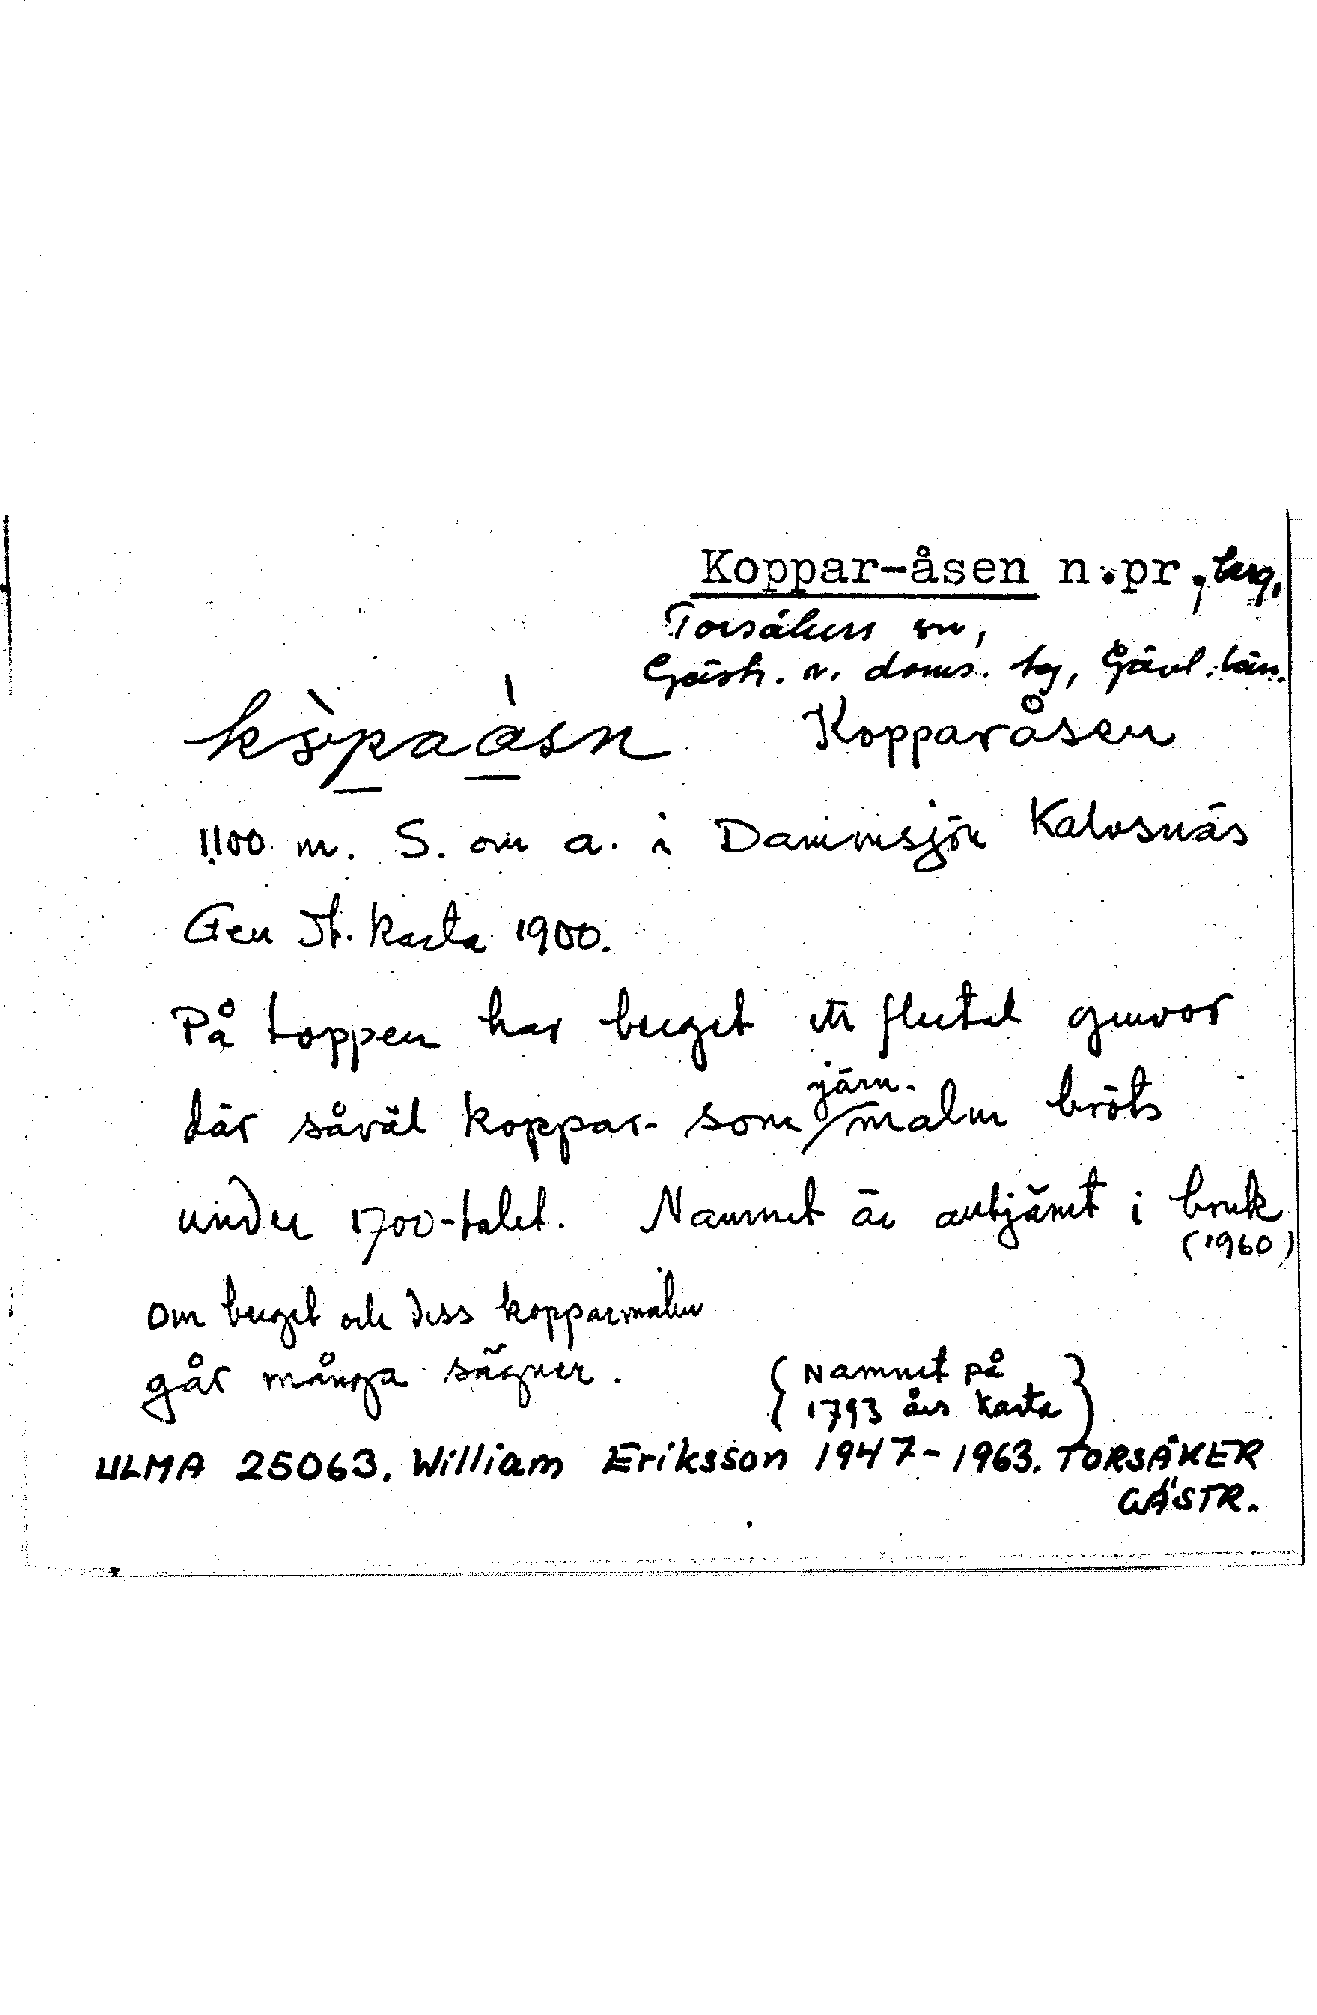 Koppar-åsen n.pr., berg,
Torsåkers sn,
Gästr. v. doms. hg, Gävl. län.
Kopparåsen
1100 m. S. om a. i Dammsjön Kalvsnäs
Gen St. karta 1900.
På toppen har berget ett flertal gruvor
där såväl koppar- som järn-malm bröts
under 1700-talet. Namnet är alltjämt i bruk
(1960)
Om berget och dess kopparmalm
går många sägner.
{Namnet på
1793 års karta}
ULMA 25063. William Eriksson 1947-1963. TORSÅKER
GÄSTR.